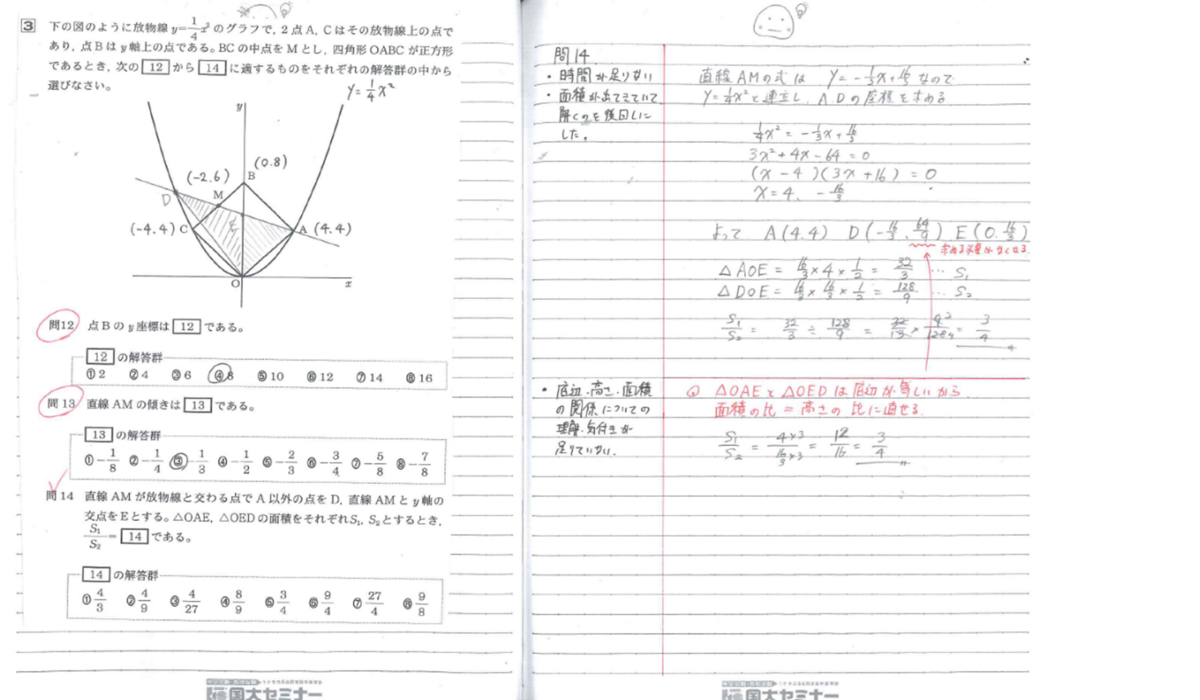 3 下の図のように放物線 y=1/4x² のグラフで, 2点A, Cはその放物線上の点で
あり, 点Bはy軸上の点である。BCの中点をMとし, 四角形OABCが正方形
であるとき, 次の 12 から 14 に適するものをそれぞれの解答群の中から
選びなさい。
y=1/4x²
y
(0.8)
B
(-2.6)
M
D
E
(-4.4) C
A (4.4)
O
x
問12 点Bのy座標は 12 である。
12 の解答群
①2 ②4 ③6 ④8 ⑤10 ⑥12 ⑦14 ⑧16
問13 直線AMの傾きは 13 である。
13 の解答群
①-1/8 ②-1/4 ③-1/3 ④-1/2 ⑤-2/3 ⑥-3/4 ⑦-5/8 ⑧-7/8
問14 直線AMが放物線と交わる点でA以外の点をD, 直線AMとy軸の
交点をEとする。△OAE, △OEDの面積をそれぞれS₁, S₂とするとき,
S₁/S₂= 14 である。
14 の解答群
①4/3 ②4/9 ③4/27 ④8/9 ⑤3/4 ⑥9/4 ⑦27/4 ⑧9/8
国大セミナー
問14
・時間が足りない
・面積が出てきていて
解くのを後回しに
した。
直線AMの式は y=-1/3x+16/3 なので
y=1/4x²と連立し、A Dの座標を求める
1/4x²=-1/3x+16/3
3x²+4x-64=0
(x-4)(3x+16)=0
x=4, -16/3
よって A(4.4) D(-16/3, 64/9) E(0.16/3)
求める必要がなくなる
△AOE=16/3×4×1/2=32/3 … S₁
△DOE=16/3×16/3×1/2=128/9 … S₂
S₁/S₂=32/3÷128/9=32/13×9/128=3/4
・底辺・高さ・面積
の関係についての
理解・気付きが
足りていない.
△OAEと△OEDは底辺が等しいから
面積の比=高さの比に直せる
S₁/S₂=4×3/16/3×3=12/16=3/4
国大セミナー